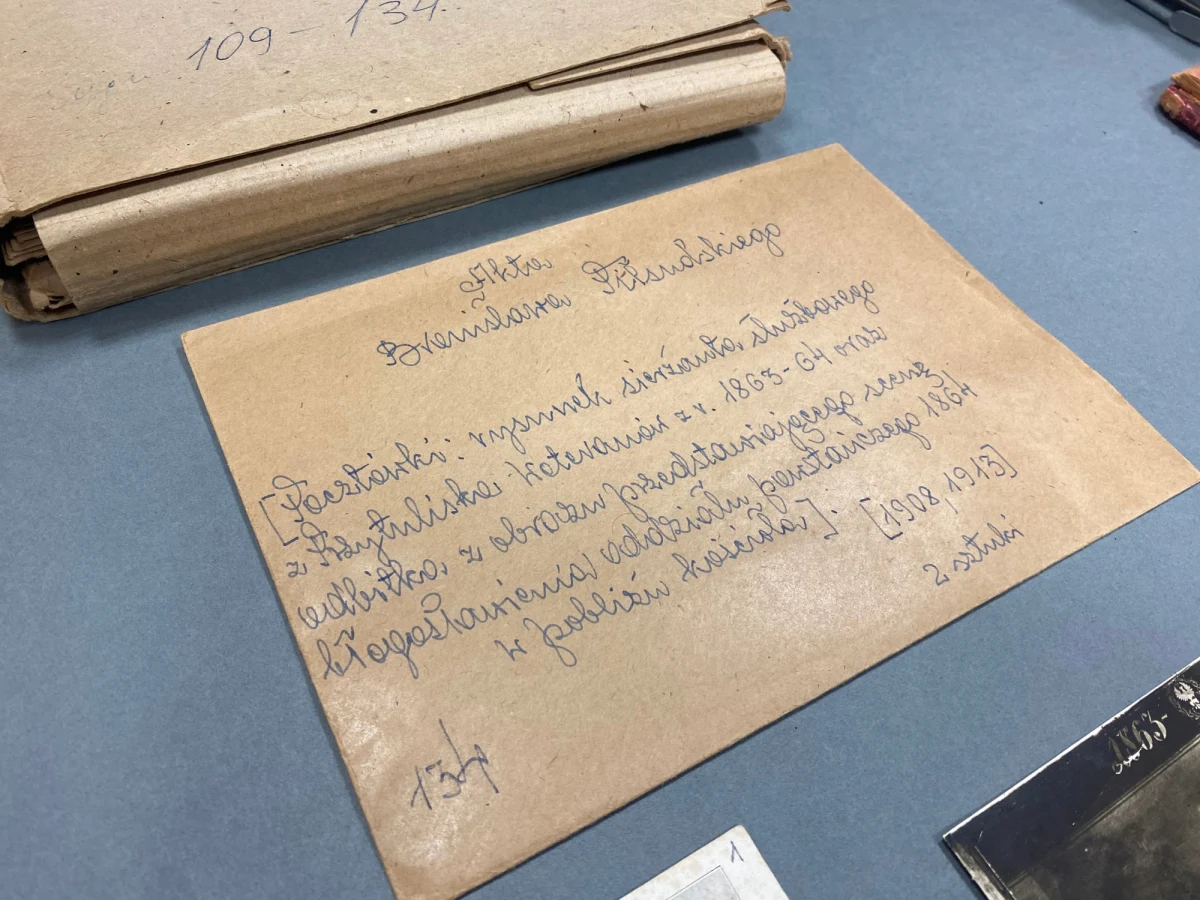 109 – 134.
Akta
Bronisława Piłsudskiego
[Pocztówki: rysunek sierżanta służbowego
z Przytuliska Weteranów z r. 1863-64 oraz
odbitka z obrazu przedstawiającego scenę
błogosławienia oddziału powstańczego 1864
w pobliżu kościoła]. [1908, 1913]
2 sztuki
134
1
1863-